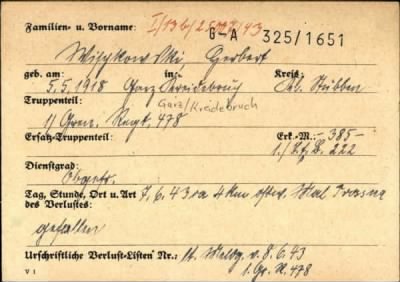 Familien- u. Vorname: I/136/25 43 G-A 325/1651
Herbert
geb. am: in: Kreis:
5.5.1918 Garz Kreidebruch Stubben
Truppenteil: Garz/Kreidebruch
1/ Gren. Regt. 478
Ersatz-Truppenteil: Erk.-M.- 385-
222
Dienstgrad:
Obgefr.
Tag, Stunde, Ort u. Art 7.6.43 ca 4 km ostw. Mal.
des Verlustes:
gefallen
Urschriftliche Verlust-Listen Nr.: lt. Meldg. v. 8.6.43
V 1 1.Gr. R. 478